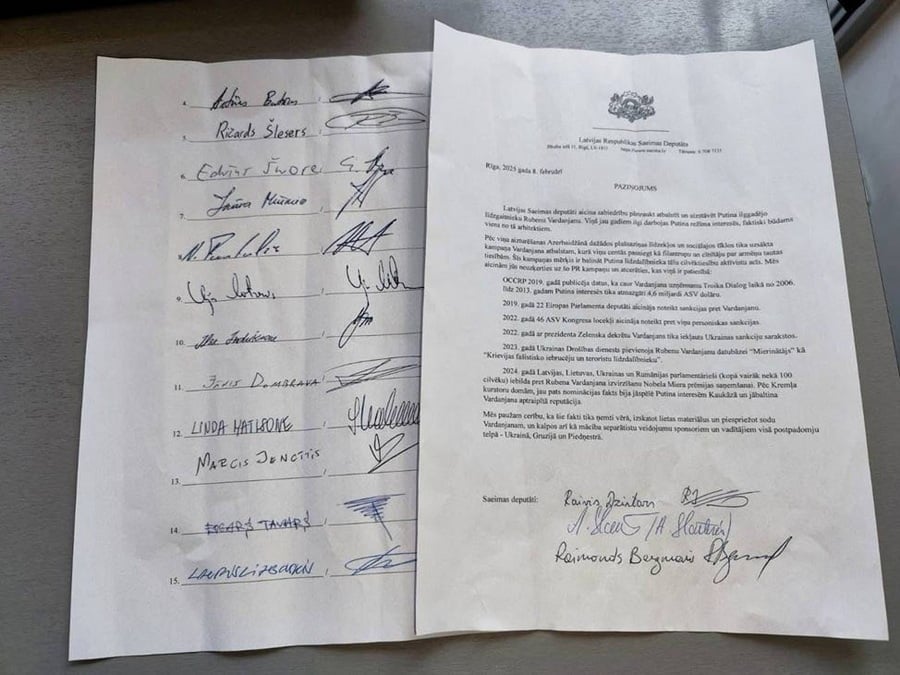 4.
5. Ričards Šlesers
6. Edvīns Šņore
7.
8.
9.
10.
11. Jānis Dombrava
12. LINDA MATISONE
13. MARCIS JENCĪTIS
14.
15.
Latvijas Republikas Saeimas Deputāts
Rīga, 2025 gada 8. februārī
PAZIŅOJUMS
Latvijas Saeimas deputāti aicina sabiedrību pārtraukt atbalstīt un aizstāvēt Putina ilggadējo
līdzgaitnieku Rubenu Vardanjanu. Viņš jau gadiem ilgi darbojas Putina režīma interesēs, faktiski būdams
viens no tā arhitektiem.
Pēc viņa aizturēšanas Azerbaidžānā dažādos plašsaziņas līdzekļos un sociālajos tīklos tika uzsākta
kampaņa Vardanjana atbalstam, kurā viņu centās pasniegt kā filantropu un cīnītāju par armēņu tautas
tiesībām. Šīs kampaņas mērķis ir balināt Putina līdzdalībnieka tēlu cilvēktiesību aktīvistu acīs. Mēs
aicinām jūs neuzķerties uz šo PR kampaņu un atcerēties, kas viņš ir patiesībā:
OCCRP 2019. gadā publicēja datus, ka caur Vardanjana uzņēmumu Troika Dialog laikā no 2006.
līdz 2013. gadam Putina interesēs tika atmazgāti 4,6 miljardi ASV dolāru.
2019. gadā 22 Eiropas Parlamenta deputāti aicināja noteikt sankcijas pret Vardanjanu.
2022. gadā 46 ASV Kongresa locekļi aicināja noteikt pret viņu personiskas sankcijas.
2022. gadā ar prezidenta Zelenska dekrētu Vardanjans tika iekļauts Ukrainas sankciju sarakstos.
2023. gadā Ukrainas Drošības dienests pievienoja Rubenu Vardanjanu datubāzei “Mierinātājs” kā
“Krievijas fašistisko iebrucēju un teroristu līdzdalībnieku”.
2024. gadā Latvijas, Lietuvas, Ukrainas un Rumānijas parlamentārieši (kopā vairāk nekā 100
cilvēku) iebilda pret Rubena Vardanjana izvirzīšanu Nobela Miera prēmijas saņemšanai. Pēc Kremļa
kuratoru domām, jau pats nominācijas fakts bija jāspēlē Putina interesēm Kaukāzā un jābaltina
Vardanjana aptraipītā reputācija.
Mēs paužam cerību, ka šie fakti tiks ņemti vērā, izskatot lietas materiālus un piespriežot sodu
Vardanjanam, un kalpos arī kā mācība separātistu veidojumu sponsoriem un vadītājiem visā postpadomju
telpā - Ukrainā, Gruzijā un Piedņestrā.
Saeimas deputāti: Raivis Dzintars
Raimonds Bergmanis